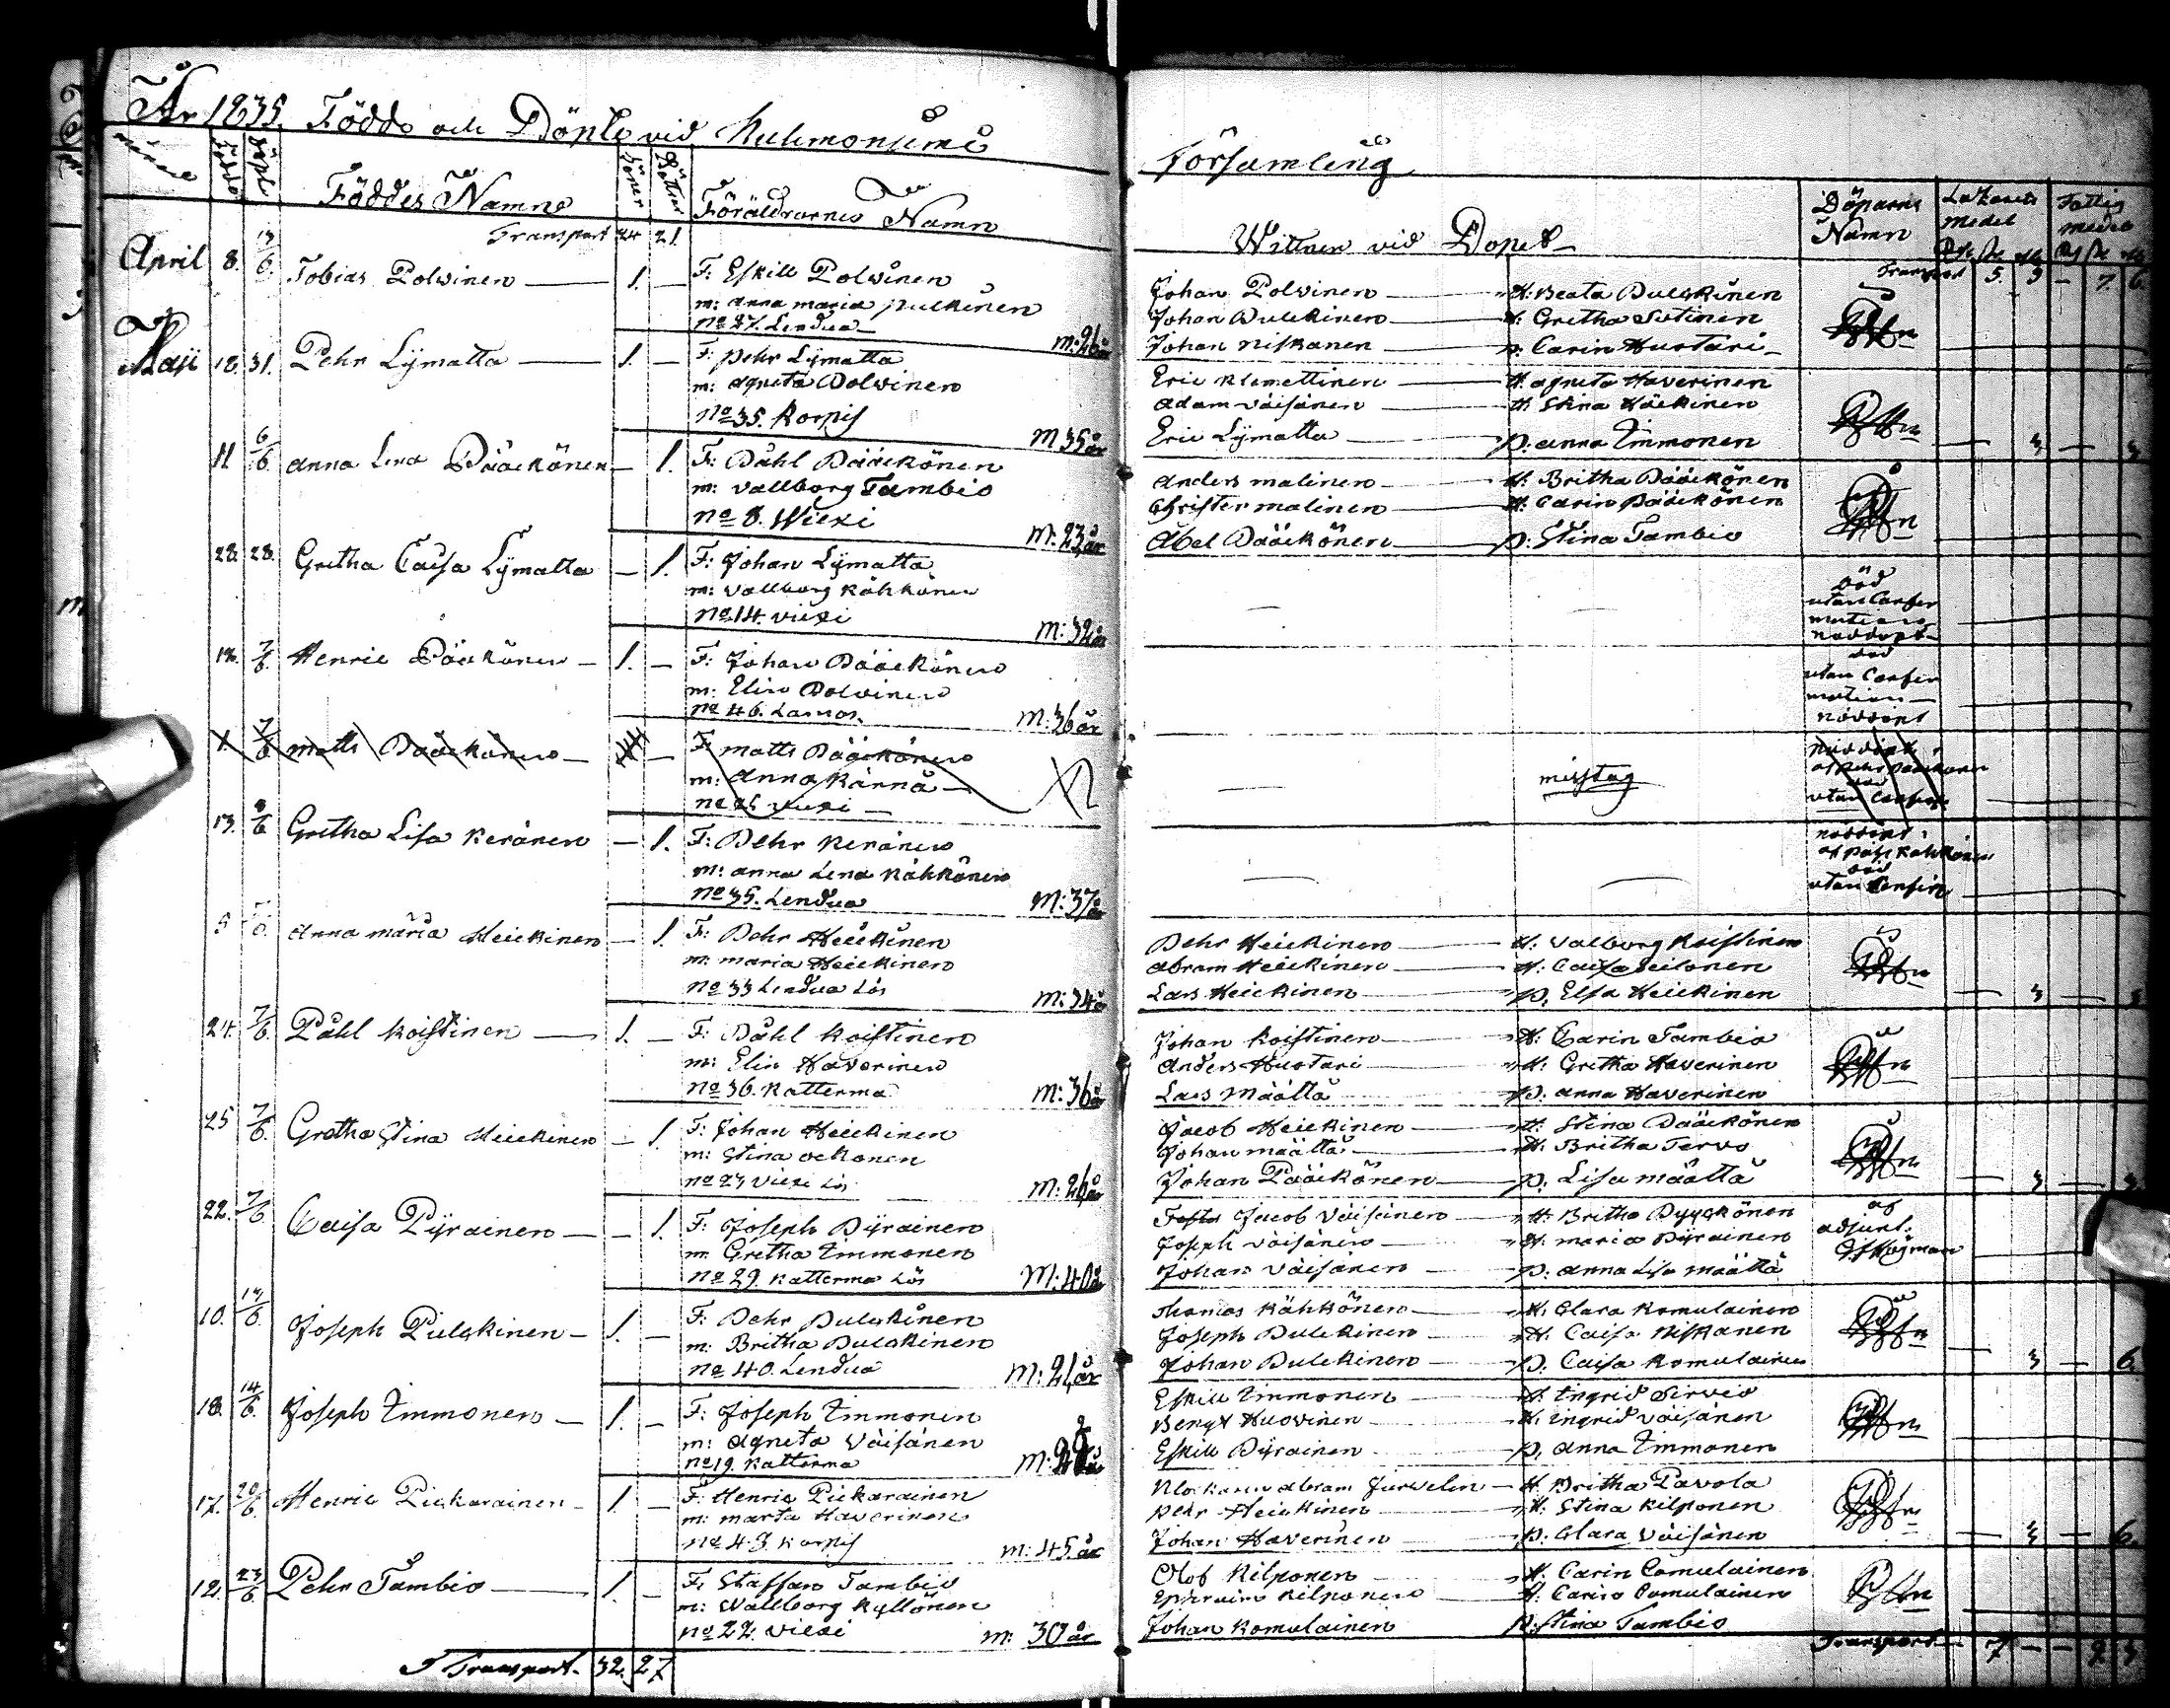 År 1835. Födde och Döpte vid Kuhmoniemi Församling
Månad Födde Döpt Föddes Namn Söner Döttrar Föräldrarnes Namn Wittnen vid Dopet Döparens Namn Lazarets medel Fattig medel
Transport 24 21. Transport 5. 3 - 7. 6.
April 8. 13/6. Tobias Polvinen 1. - F: Eskill Polvinen
m: Anna Maria Pulkinen
No 27. Lendua m: 26 år
Johan Polvinen H: Beata Pulckinen
Johan Pulckinen H: Gretha Sutinen
Johan Niskanen p: Carin Huotari
Maji 18. 31. Pehr Lÿmatta 1. - F: Pehr Lÿmatta
m: Agneta Polvinen
No 35. Korpis M 35 år
Eric Klemettinen H: Agneta Haverinen
Adam Väisänen H: Stina Häckinen
Eric Lÿmatta p: Anna Timmonen
- 3 - 3
11 6/6 Anna Lena Pääckönen - 1. F: Påhl Pääckönen
m: Vallborg Tambio
No 8. Wiexi M: 23 år
Anders Malinen H: Britha Pääckönen
Christer Malinen H: Carin Pääckönen
Abel Pääckönen p: Stina Tambio
28. 28. Gretha Caisa Lÿmatta - 1. F: Johan Lÿmatta
m: Vallborg Kähkönen
No 14. Viexi m: 32 år
död
utan Confir
mation
nöddöpt
12. 7/6. Henric Pääckönen 1. - F: Johan Pääckönen
m: Elin Polvinen
No 46. Lamas. M: 36 år
död
utan Confir
mation
nöddöpt
1. 7/6 Matts Pääckönen - F: Matts Pääckönen
m: Anna Kärnä
No 26 Viexi
misstag
nöddöpt
af Pehr Pääckönen
död
utan Confirm
13. 8/6 Gretha Lisa Keränen - 1. F: Pehr Keränen
m: Anna Lena Kähkönen
No 35. Lendua M: 37 år
nöddöpt
af Påhl Kähkönen
död
utan Confirm
5 7/6. Anna Maria Heickinen - 1. F: Pehr Heickinen
m: Maria Heickinen
No 33 Lendua Lös m: 34 år
Pehr Heickinen H: Valborg Koistinen
Abram Heickinen H: Caisa Seilonen
Lars Heickinen p. Elsa Heickinen
- 3 - 3
24. 7/6. Påhl Koistinen 1. - F: Påhl Koistinen
m: Elin Haverinen
No 36. Katterma m: 36 år
Johan Koistinen H: Carin Tambio
Anders Huotari H: Gretha Haverinen
Lars Määttä p. Anna Haverinen
25 7/6. Gretha Stina Heickinen - 1. F: Johan Heickinen
m: Stina Ockonen
No 23 Viexi Lös m: 26 år
Jacob Heickinen H: Stina Pääckönen
Johan Määttä H: Britha Tervo
Johan Pääckönen p. Lisa Määttä
- 3 - 3
22. 7/6. Caisa Pÿrainen - 1. F: Joseph Pÿrainen
m: Gretha Timmonen
No 29. Katterma Lös M: 40 år
Jacob Väisänen H: Britha Pyykönen
Joseph Väisänen H: Maria Pÿrainen
Johan Väisänen p: Anna Lisa Määttä
af
adjunct.
10. 14/6. Joseph Pulckinen 1. - F: Pehr Pulckinen
m: Britha Pulckinen
No 40. Lendua m: 21 år
Thomas Kähkönen H: Clara Komulainen
Joseph Pulckinen H: Caisa Niskanen
Johan Pulckinen p. Caisa Komulainen
- 3 - 6.
18. 14/6. Joseph Timmonen 1. - F: Joseph Timmonen
m: Agneta Väisänen
No 19. Katterma
Eskill Timmonen H: Ingrid Sirvio
Bengt Huovinen H: Ingrid Väisänen
Eskill Pÿrainen p. Anna Timmonen
17. 20/6. Henric Pickarainen 1. - F: Henric Pickarainen
m: Marta Haverinen
No 43 Korpis m: 45 år
Klockaren Abram Juvelin H: Britha Pavola
Pehr Heickinen H: Stina Kilponen
Johan Haverinen p: Clara Väisänen
- 3 - 6.
12. 23/6 Pehr Tambio 1. - F: Staffan Tambio
m: Wallborg Kyllönen
No 22. Viexi m: 30 år
Olof Kilponen H: Carin Comulainen
Ephraim Kilponen H: Carin Comulainen
Johan Komulainen p: Stina Tambio
Transport 32. 27 Transport 7 - - 9 3